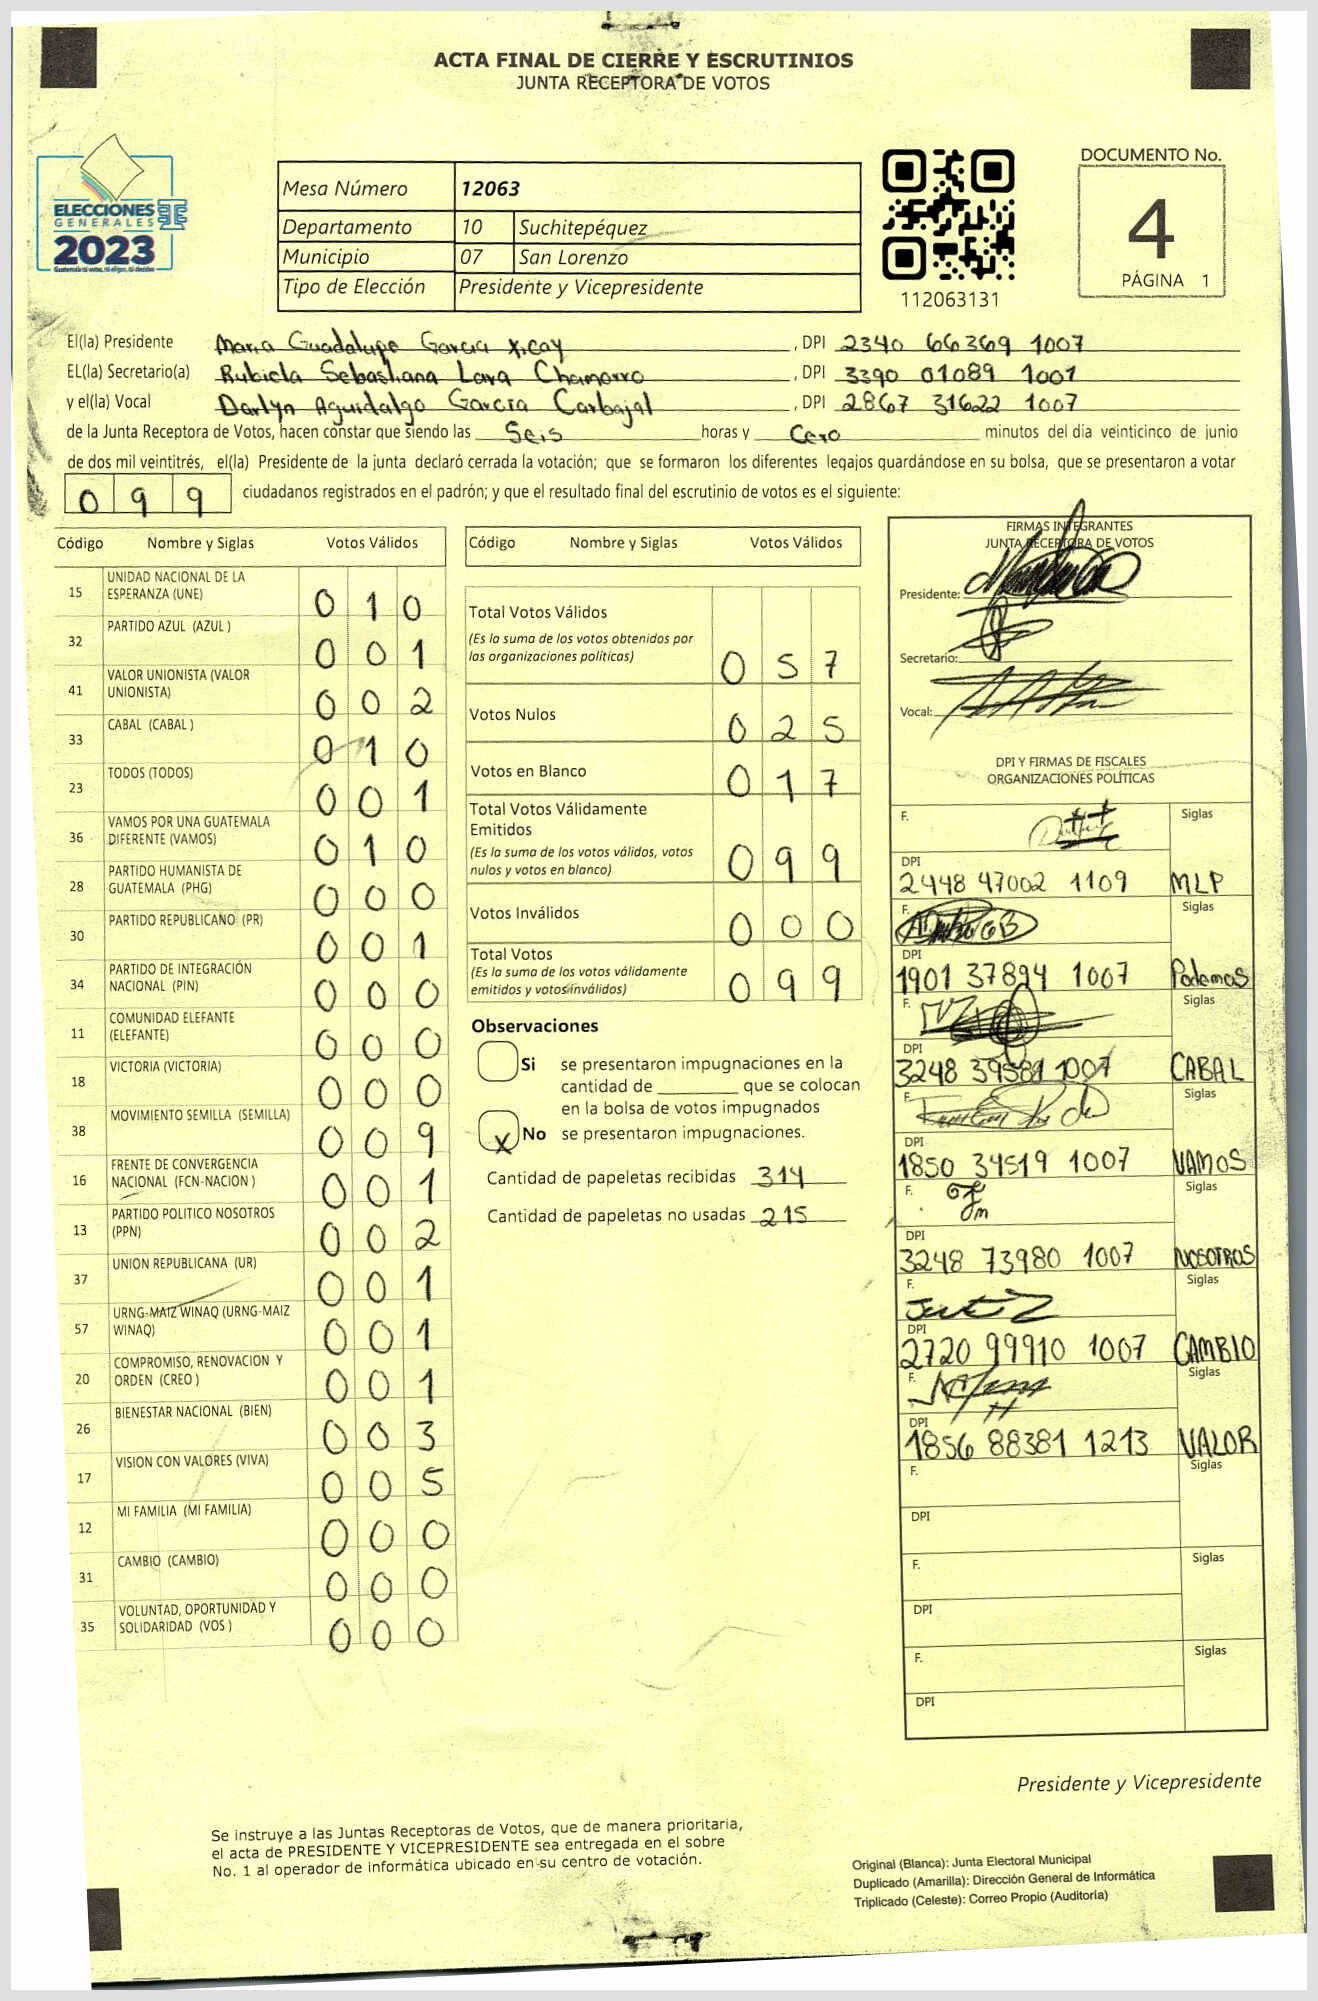 ACTA FINAL DE CIERRE Y ESCRUTINIOS
JUNTA RECEPTORA DE VOTOS
ELECCIONES
GENERALES
2023
Mesa Número 12063
Departamento 10 Suchitepéquez
Municipio 07 San Lorenzo
Tipo de Elección Presidente y Vicepresidente
112063131
DOCUMENTO No.
4
PÁGINA 1
El(la) Presidente Maria Guadalupe Garcia Xicay, DPI 2340 66369 1007
EL(la) Secretario(a) Rubiela Sebastiana Lara Chamorro, DPI 3390 01089 1001
y el(la) Vocal Darlyn Aguidalgo Garcia Carbajal, DPI 2867 31622 1007
de la Junta Receptora de Votos, hacen constar que siendo las Seis horas y Cero minutos del día veinticinco de junio
de dos mil veintitrés, el(la) Presidente de la junta declaró cerrada la votación; que se formaron los diferentes legajos guardándose en su bolsa, que se presentaron a votar
099 ciudadanos registrados en el padrón; y que el resultado final del escrutinio de votos es el siguiente:
Código Nombre y Siglas Votos Válidos
15 UNIDAD NACIONAL DE LA
ESPERANZA (UNE) 010
32 PARTIDO AZUL (AZUL ) 001
41 VALOR UNIONISTA (VALOR
UNIONISTA) 002
33 CABAL (CABAL ) 010
23 TODOS (TODOS) 001
36 VAMOS POR UNA GUATEMALA
DIFERENTE (VAMOS) 010
28 PARTIDO HUMANISTA DE
GUATEMALA (PHG) 000
30 PARTIDO REPUBLICANO (PR) 001
34 PARTIDO DE INTEGRACIÓN
NACIONAL (PIN) 000
11 COMUNIDAD ELEFANTE
(ELEFANTE) 000
18 VICTORIA (VICTORIA) 000
38 MOVIMIENTO SEMILLA (SEMILLA) 009
16 FRENTE DE CONVERGENCIA
NACIONAL (FCN-NACION ) 001
13 PARTIDO POLITICO NOSOTROS
(PPN) 002
37 UNION REPUBLICANA (UR) 001
57 URNG-MAIZ WINAQ (URNG-MAIZ
WINAQ) 001
20 COMPROMISO, RENOVACION Y
ORDEN (CREO ) 001
26 BIENESTAR NACIONAL (BIEN) 003
17 VISION CON VALORES (VIVA) 005
12 MI FAMILIA (MI FAMILIA) 000
31 CAMBIO (CAMBIO) 000
35 VOLUNTAD, OPORTUNIDAD Y
SOLIDARIDAD (VOS ) 000
Código Nombre y Siglas Votos Válidos
Total Votos Válidos
(Es la suma de los votos obtenidos por
las organizaciones políticas) 057
Votos Nulos 025
Votos en Blanco 017
Total Votos Válidamente
Emitidos
(Es la suma de los votos válidos, votos
nulos y votos en blanco) 099
Votos Inválidos 000
Total Votos
(Es la suma de los votos válidamente
emitidos y votos inválidos) 099
Observaciones
Si se presentaron impugnaciones en la
cantidad de ________ que se colocan
en la bolsa de votos impugnados
X No se presentaron impugnaciones.
Cantidad de papeletas recibidas 314
Cantidad de papeletas no usadas 215
FIRMAS INTEGRANTES
JUNTA RECEPTORA DE VOTOS
Presidente:
Secretario:
Vocal:
DPI Y FIRMAS DE FISCALES
ORGANIZACIONES POLÍTICAS
F. Siglas
DPI
2448 47002 1109 MLP
F. Siglas
DPI
1901 37894 1007 Podemos
F. Siglas
DPI
3248 39581 1007 CABAL
F. Siglas
DPI
1850 34519 1007 VAMOS
F. Siglas
DPI
3248 73980 1007 NOSOTROS
F. Siglas
DPI
2720 99910 1007 CAMBIO
F. Siglas
DPI
1856 88381 1213 VALOR
F. Siglas
DPI
F. Siglas
DPI
F. Siglas
DPI
Presidente y Vicepresidente
Se instruye a las Juntas Receptoras de Votos, que de manera prioritaria,
el acta de PRESIDENTE Y VICEPRESIDENTE sea entregada en el sobre
No. 1 al operador de informática ubicado en su centro de votación.
Original (Blanca): Junta Electoral Municipal
Duplicado (Amarilla): Dirección General de Informática
Triplicado (Celeste): Correo Propio (Auditoría)